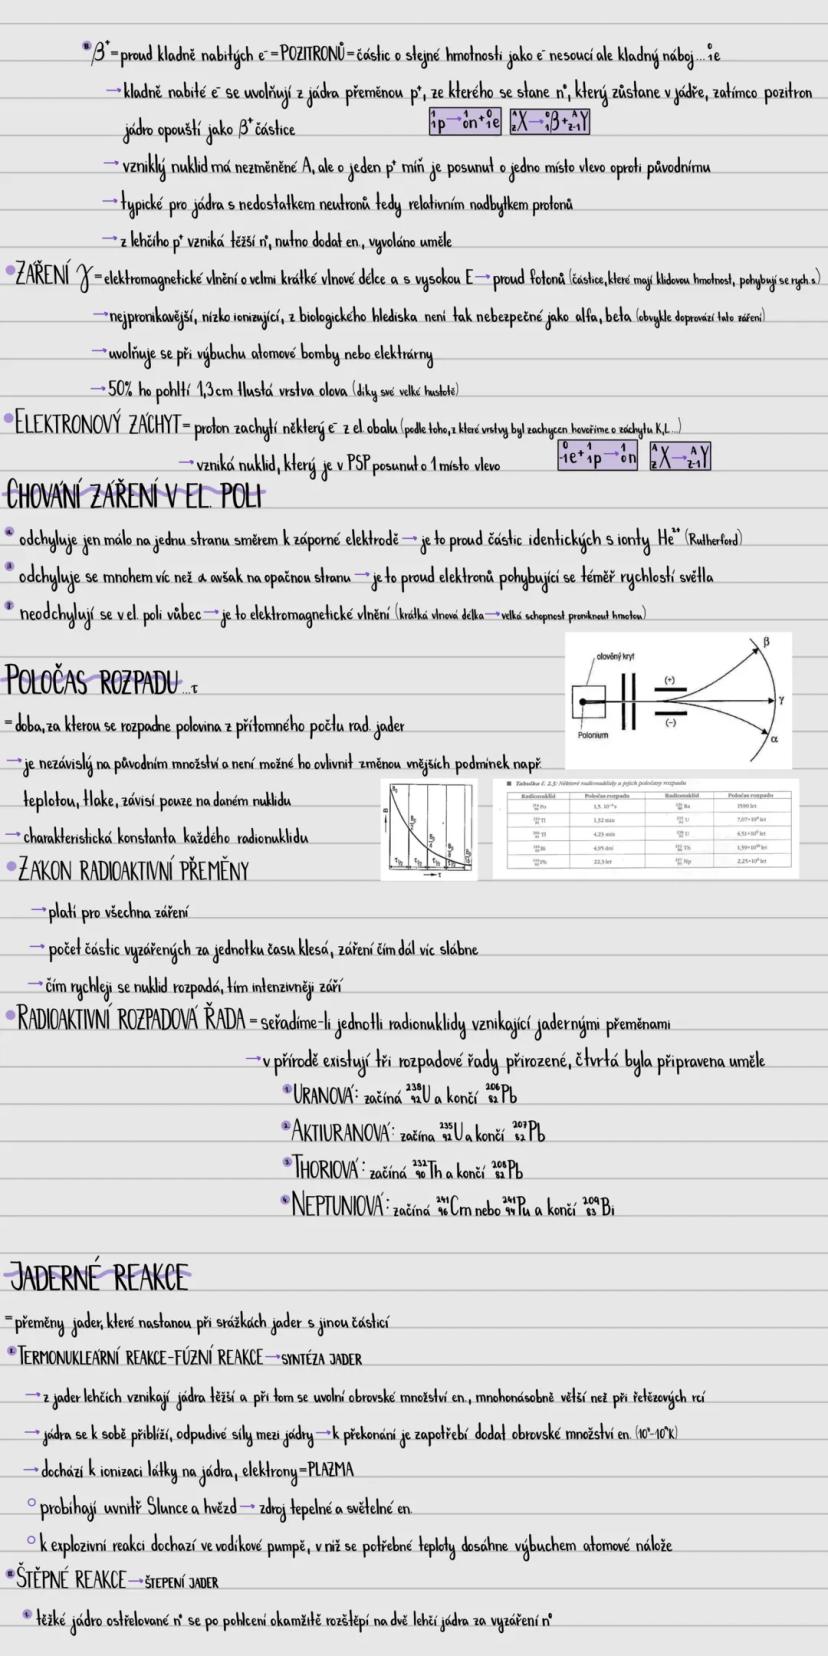 β⁺=proud kladně nabitých e⁻=POZITRONŮ=částic o stejné hmotnosti jako e⁻ nesoucí ale kladný náboj...⁰₁e
→kladně nabité e⁻ se uvolňují z jádra přeměnou p⁺, ze kterého se stane n⁰, který zůstane v jádře, zatímco pozitron
jádro opouští jako β⁺částice
¹₁p→¹₀n+⁰₁e
ᴬzX→⁰₁β+ᴬz-1Y
→vzniklý nuklid má nezměněné A, ale o jeden p⁺ míň je posunut o jedno místo vlevo oproti původnímu
→typické pro jádra s nedostatkem neutronů tedy relativním nadbytkem protonů
→z lehčího p⁺ vzniká těžší n⁰, nutno dodat en., vyvoláno uměle
ZÁŘENÍ γ=elektromagnetické vlnění o velmi krátké vlnové délce a s vysokou E→proud fotonů (částice, které mají klidovou hmotnost, pohybují se rych. s)
→nejpronikavější, nízko ionizující, z biologického hlediska není tak nebezpečné jako alfa, beta (obvykle doprovází tato záření)
→uvolňuje se při výbuchu atomové bomby nebo elektrárny
→50% ho pohltí 1,3cm tlustá vrstva olova (díky své velké hustotě)
ELEKTRONOVÝ ZÁCHYT=proton zachytí některý e⁻ z el. obalu (podle toho, z které vrstvy byl zachycen hovoříme o záchytu K,L...)
→vzniká nuklid, který je v PSP posunut o 1 místo vlevo
⁰₋₁e+¹₁p→¹₀n
ᴬzX→ᴬz-1Y
CHOVÁNÍ ZÁŘENÍ V EL. POLI
α odchyluje jen málo na jednu stranu směrem k záporné elektrodě→je to proud částic identických s ionty He²⁺ (Rutherford)
β odchyluje se mnohem víc než α avšak na opačnou stranu→je to proud elektronů pohybující se téměř rychlostí světla
γ neodchylují se v el. poli vůbec→je to elektromagnetické vlnění (krátká vlnová délka→velká schopnost proniknout hmotou)
olověný kryt
Polonium
(+)
(−)
β
γ
α
POLOČAS ROZPADU...τ
=doba, za kterou se rozpadne polovina z přítomného počtu rad. jader
→je nezávislý na původním množství a není možné ho ovlivnit změnou vnějších podmínek např.
teplotou, tlake, závisí pouze na daném nuklidu
→charakteristická konstanta každého radionuklidu
Tabulka č. 2.3: Některé radionuklidy a jejich poločasy rozpadu
Radionuklid Poločas rozpadu Radionuklid Poločas rozpadu
Po 1,5. 10⁻⁴ s Ra 1590 let
Tl 1,32 min U 7,07•10⁸ let
Tl 4,23 min U 4,51•10⁹ let
Bi 4,95 dní Th 1,39•10¹⁰ let
Pb 22,3 let Np 2,25•10⁶ let
ZÁKON RADIOAKTIVNÍ PŘEMĚNY
→platí pro všechna záření
→počet částic vyzářených za jednotku času klesá, záření čím dál víc slábne
→čím rychleji se nuklid rozpadá, tím intenzivněji září
RADIOAKTIVNÍ ROZPADOVÁ ŘADA=seřadíme-li jednotli radionuklidy vznikající jadernými přeměnami
→v přírodě existují tři rozpadové řady přirozené, čtvrtá byla připravena uměle
1. URANOVÁ: začíná ²³⁸₉₂U a končí ²⁰⁶₈₂Pb
2. AKTIURANOVÁ: začína ²³⁵₉₂U a končí ²⁰⁷₈₂Pb
3. THORIOVÁ: začíná ²³²₉₀Th a končí ²⁰⁸₈₂Pb
4. NEPTUNIOVÁ: začíná ²⁴¹₉₆Cm nebo ²⁴¹₉₄Pu a končí ²⁰⁹₈₃Bi
JADERNÉ REAKCE
=přeměny jader, které nastanou při srážkách jader s jinou částicí
I. TERMONUKLEÁRNÍ REAKCE-FÚZNÍ REAKCE→SYNTÉZA JADER
→z jader lehčích vznikají jádra těžší a při tom se uvolní obrovské množství en., mnohonásobně větší než při řetězových rcí
→jádra se k sobě přiblíží, odpudivé síly mezi jádry→k překonání je zapotřebí dodat obrovské množství en.
→dochází k ionizaci látky na jádra, elektrony=PLAZMA
probíhají uvnitř Slunce a hvězd→zdroj tepelné a světelné en.
k explozivní reakci dochází ve vodíkové pumpě, v níž se potřebné teploty dosáhne výbuchem atomové nálože
II. ŠTĚPNÉ REAKCE→ŠTEPENÍ JADER
1. těžké jádro ostřelované n⁰ se po pohlcení okamžitě rozštěpí na dvě lehčí jádra za vyzáření n⁰